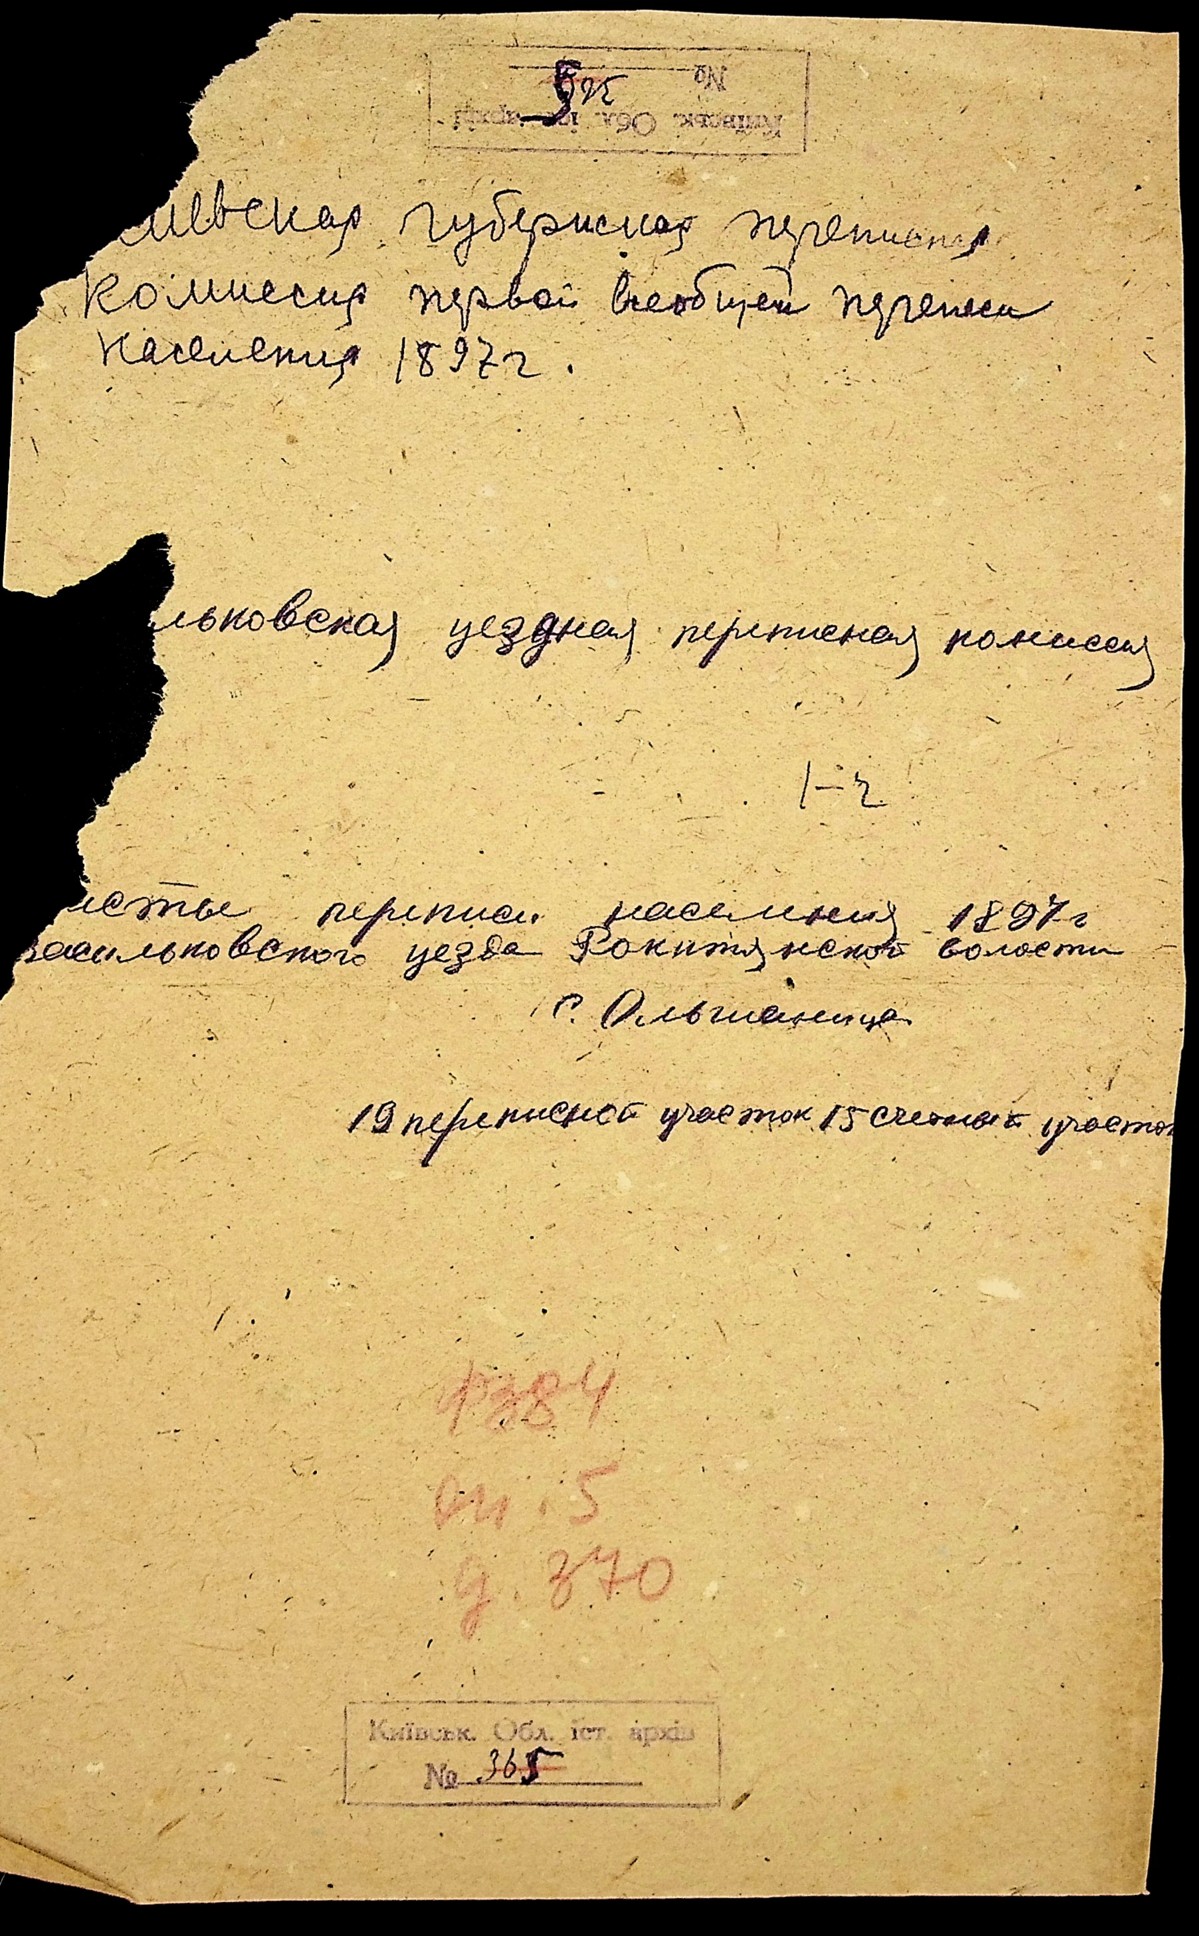 №
Київськ. Обл. іст. архів
иевская губернская переписная
комиссия первой всеобщей переписи
населения 1897 г.
льковская уездная переписная комиссия
исты переписи населения 1897 г
васильковского уезда Рокитянской волости
с. Ольшаница
19 переписной участок 15 счетный участок
Ф 384
оп. 5
д. 370
Київськ. Обл. іст. архів
№ 365